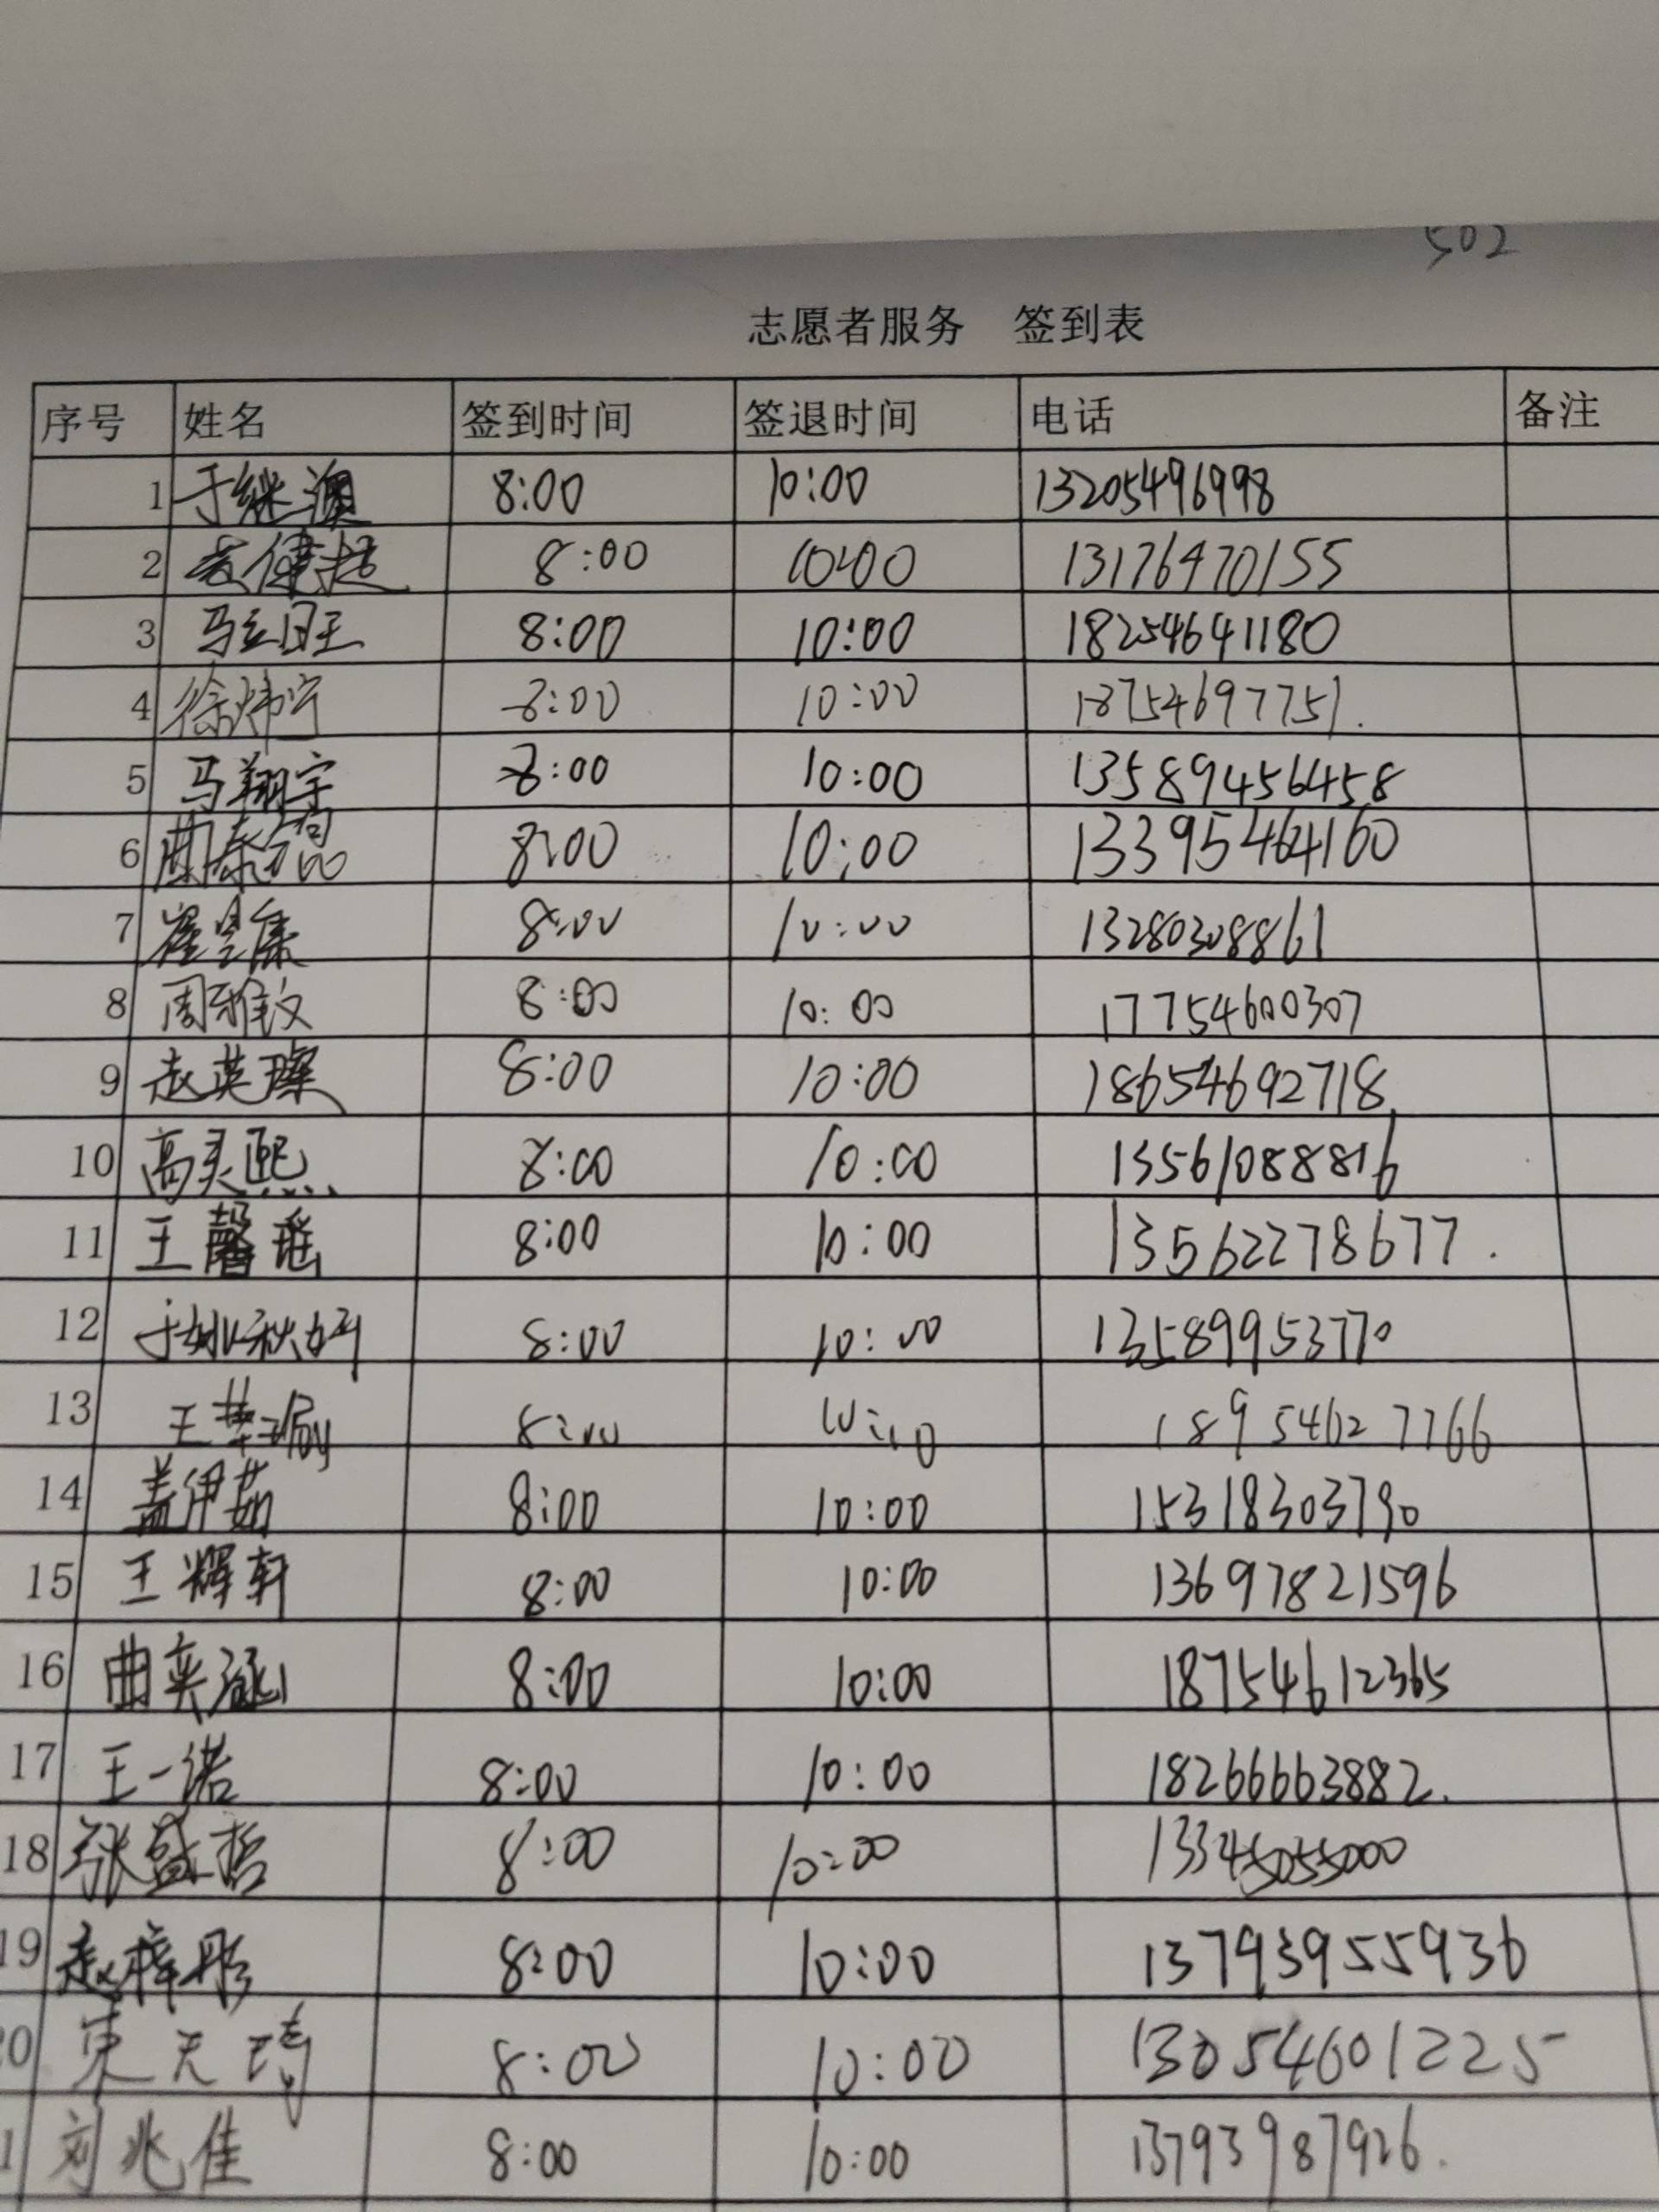 502
志愿者服务 签到表
序号 姓名 签到时间 签退时间 电话 备注
1 于继澳 8:00 10:00 13205496998
2 8:00 10:00 13176470155
3 马钰旺 8:00 10:00 18254641180
4 徐炜宁 8:00 10:00 18754697751.
5 马翔宇 8:00 10:00 13589456458
6 8:00 10:00 13395464160
7 8:00 10:00 13280308861
8 周雅文 8:00 10:00 17754600307
9 赵英璨 8:00 10:00 18654692718
10 高灵熙 8:00 10:00 13561088816
11 王馨瑶 8:00 10:00 13562278677.
12 于姚秋妤 8:00 10:00 13589953770
13 8:00 10:10 18954627766
14 盖伊茹 8:00 10:00 15318303790
15 王辉轩 8:00 10:00 13697821596
16 曲奕涵 8:00 10:00 18754612365
17 王一诺 8:00 10:00 18266663882.
18 张盛哲 8:00 10:00 13345055000
19 赵梓彤 8:00 10:00 13793955936
0 宋天琦 8:00 10:00 13054601225
1 刘兆佳 8:00 10:00 13793987926.